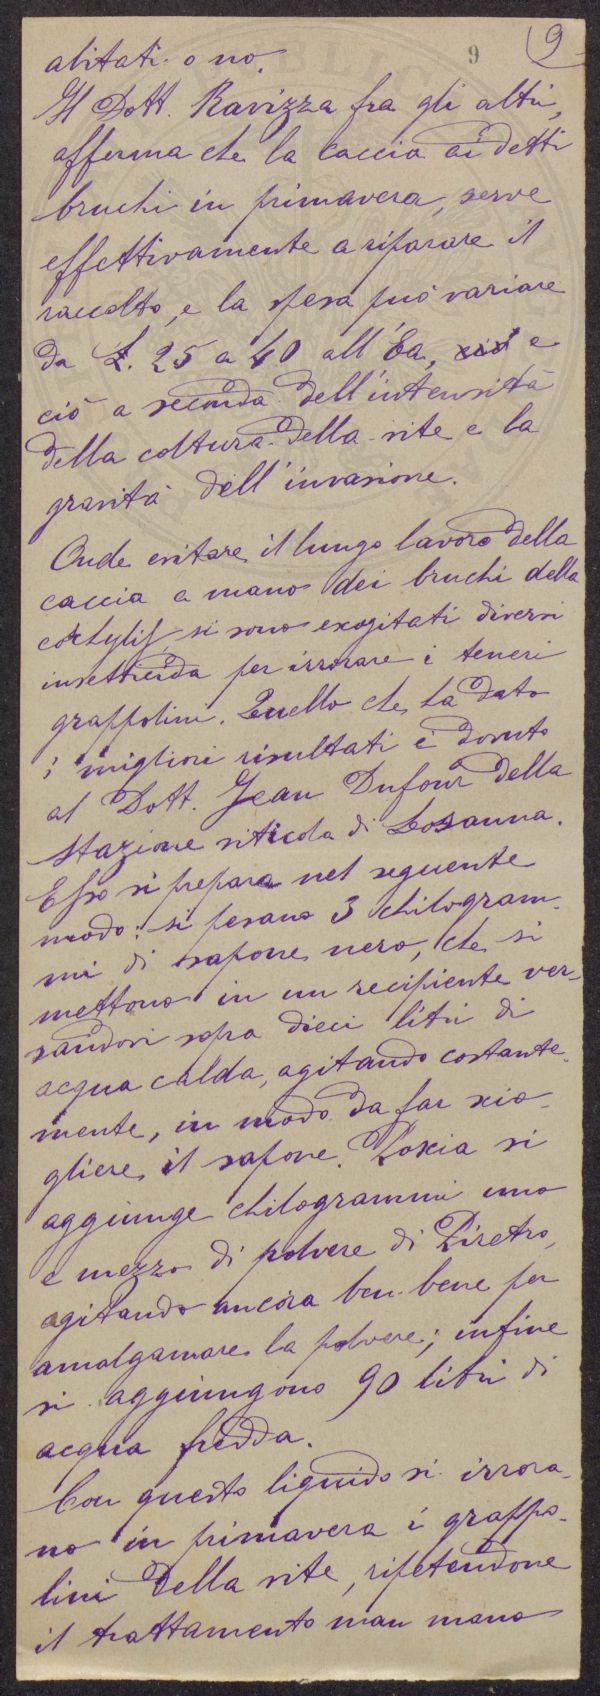 9 9
abitati o no.
Il Dott. Ravizza fra gli altri,
afferma che la caccia ai detti
bruchi in primavera, serve
effettivamente a riparare il
raccolto, e la spesa può variare
da L. 25 a 40 all'Ea, e
ciò a seconda dell'intensità
della coltura della vite e la
gravità dell'invasione.
Onde evitare il lungo lavoro della
caccia a mano dei bruchi della
cochylis, si sono exogitati diversi
insetticida per irrorare i teneri
grappolini. Quello che ha dato
i migliori risultati è dovuto
al Dott. Jean Dufour della
stazione viticola di Losanna.
Esso si prepara nel seguente
modo: si pesano 3 chilogram-
mi di sapone nero, che si
mettono in un recipiente ver-
sandovi sopra dieci litri di
acqua calda, agitando costante-
mente, in modo da far scio-
gliere il sapone. Poscia si
aggiunge chilogrammi uno
e mezzo di polvere di Piretro,
agitando ancora ben bene per
amalgamare la polvere; infine
si aggiungono 90 litri di
acqua fredda.
Con questo liquido si irrora-
no in primavera i grappo-
lini della vite, ripetendone
il trattamento man mano